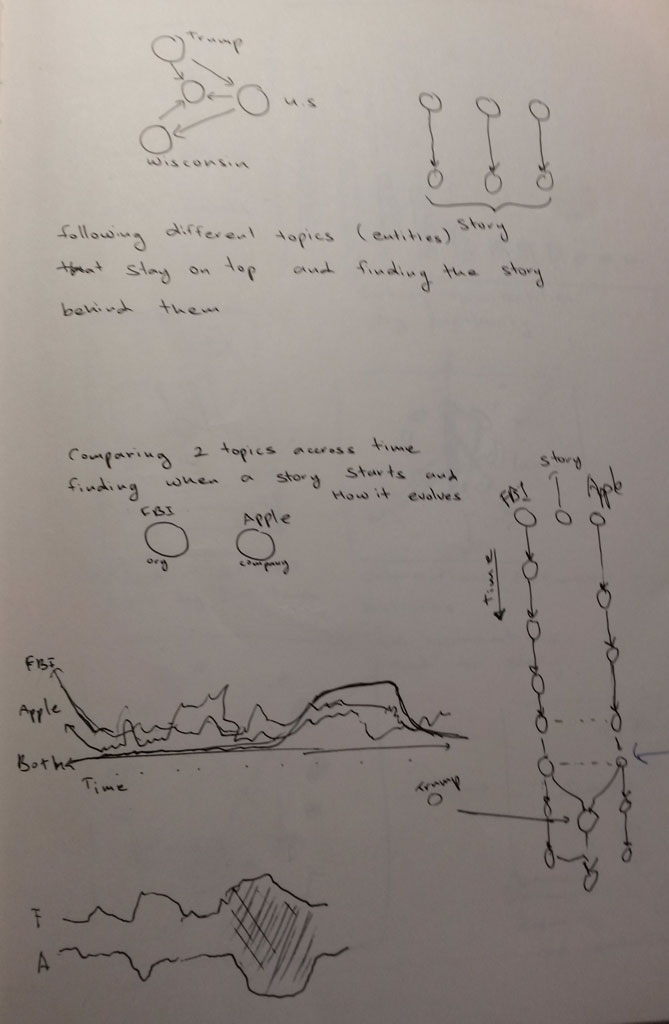 Trump
u.s
Wisconsin
Story
following different topics (entities)
that stay on top and finding the story
behind them
Comparing 2 topics accross time
finding when a story starts and
How it evolves
FBI
Apple
org
company
story
FBI
Apple
Time
FBI
Apple
Both
Time
Trump
F
A